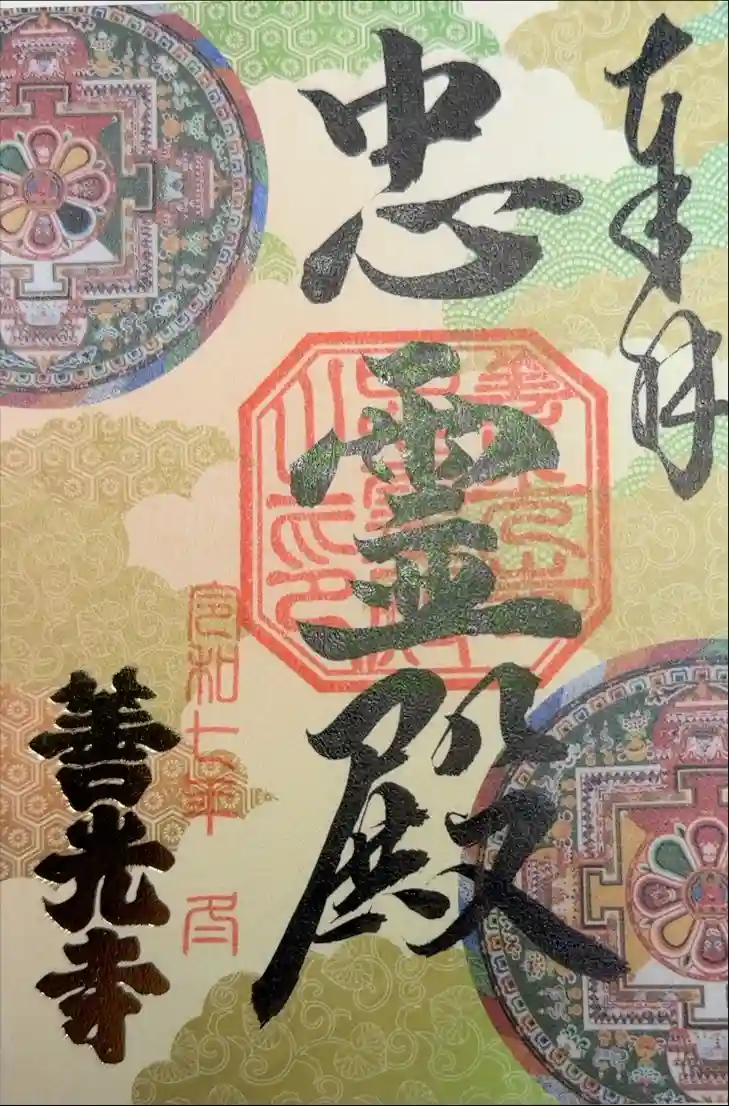 奉拝
忠霊殿
令和七年 冬
善光寺